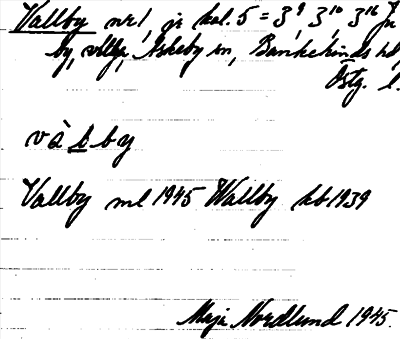 Vallby nr 1, jr kal. 5 = 3⁹, 3¹⁰, 3¹⁶ Jä
by, vttp, Askeby sn, Bankekinds hd,
Östg. l.
våḷby
Vallby ml 1945 Wallby kb 1939
Maja Nordlund 1945.